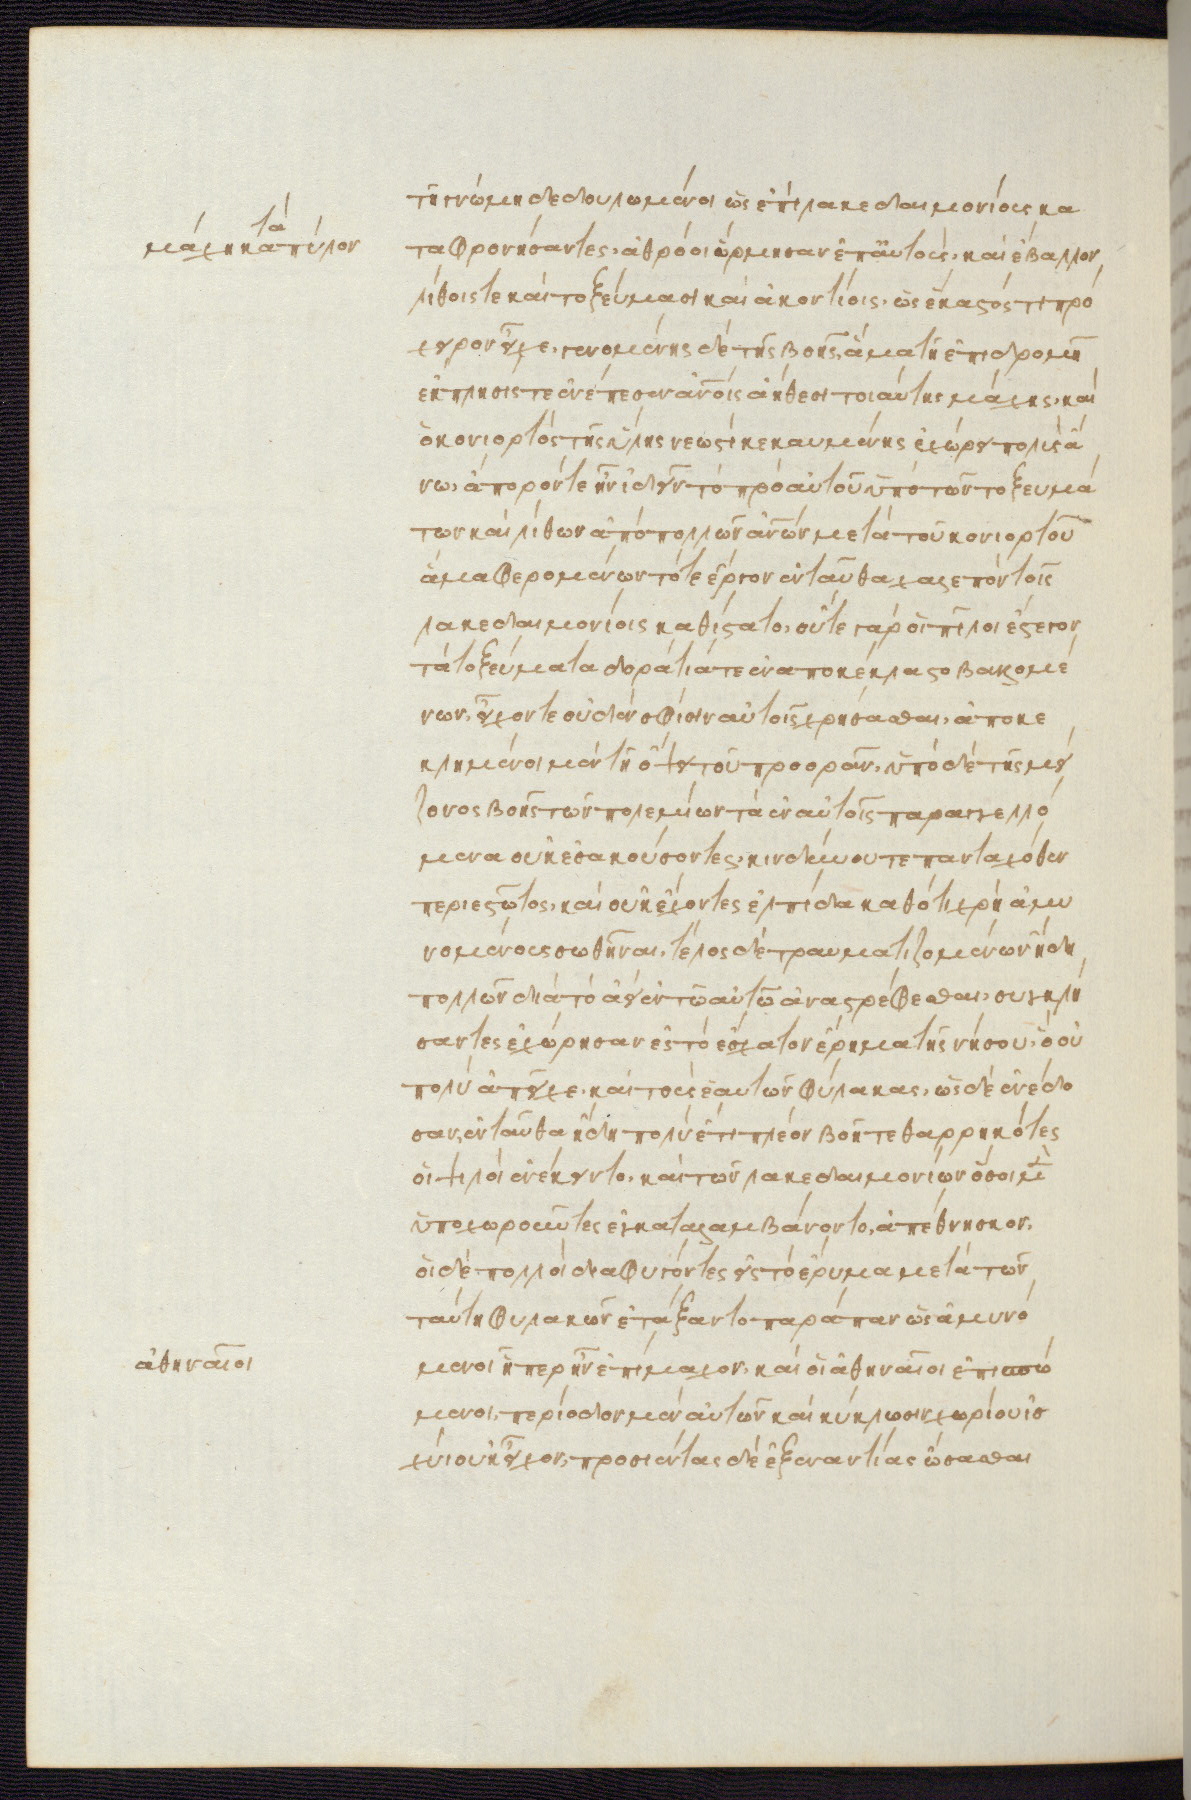 τῆ γνώμη δεδουλωμένοι ὡς ἐπὶ λακεδαιμονίους κα
μάχη κατὰ πύλον
ταφρονήσαντες, ἀθρόοι ὥρμησαν ἐπ' αὐτούς, καὶ ἔβαλλον
λίθοις τε καὶ τοξεύμασι καὶ ἀκοντίοις, ὡς ἕκαστός τι πρό
χειρον εἶχε, γενομένης δὲ τῆς βοῆς, ἅμα τῆ ἐπιδρομῆ
ἔκπλησις τε ἐνέπεσεν ἀνοῖς ἀήθεσι τοιαύτης μάχης, καὶ
ὁ κονιορτὸς τῆς ὕλης νεωστὶ κεκαυμένης ἐχώρει πολὺς ἄ
νω, ἄπορόν τε ἦν ἰδεῖν τὸ πρὸ αὑτοῦ ὑπὸ τῶν τοξευμά
των καὶ λίθων ἀπὸ πολλῶν ἀνῶν μετὰ τοῦ κονιορτοῦ
ἅμα φερομένων τό τε ἔργον ἐνταῦθα χαλεπὸν τοῖς
λακεδαιμονίοις καθίστατο, οὔτε γὰρ οἱ πῖλοι ἔστεγον
τὰ τοξεύματα δοράτιά τε ἐναποκέκλαστο βαλλομέ
νων, εἶχόν τε οὐδὲν σφίσιν αὐτοῖς χρήσασθαι, ἀποκε
κλημένοι μὲν τῆ ὄψει τοῦ προορᾶν, ὑπὸ δὲ τῆς μεί
ζονος βοῆς τῶν πολεμίων τὰ ἐν αὐτοῖς παραγγελλό
μενα οὐκ ἐσακούοντες, κινδύνου τε πανταχόθεν
περιεστῶτος, καὶ οὐκ ἔχοντες ἐλπίδα καθότι χρὴ ἀμυ
νομένους σωθῆναι, τέλος δὲ τραυματιζομένων ἤδη
πολλῶν διὰ τὸ ἀεὶ ἐν τῶ αὐτῶ ἀναστρέφεσθαι, συγκλή
σαντες ἐχώρησαν ἐς τὸ ἔσχατον ἔρημα τῆς νήσου, ὃ οὐ
πολὺ ἀπεῖχε, καὶ τοὺς ἑαυτῶν φύλακας, ὡς δὲ ἐνέδο
σαν, ἐνταῦθα ἤδη πολὺ ἔτι πλέον βοῆ τεθαρρηκότες
οἱ ψιλοὶ ἐνέκειντο, καὶ τῶν λακεδαιμονίων ὅσοι μὲν
ὑποχωροῦντες ἐγκατελαμβάνοντο, ἀπέθνησκον,
οἱ δὲ πολλοὶ διαφυγόντες εἰς τὸ ἔρυμα μετὰ τῶν
ταύτη φυλακῶν ἐτάξαντο παρὰ πᾶν ὡς ἀμυνό
ἀθηναῖοι
μενοι ἧπερ ἦν ἐπίμαχον, καὶ οἱ ἀθηναῖοι ἐπισπό
μενοι, περίοδον μὲν αὐτῶν καὶ κύκλωσιν χωρίου ἰσ
χύι οὐκ εἶχον, προσιόντας δὲ ἐξεναντίας ὤσασθαι